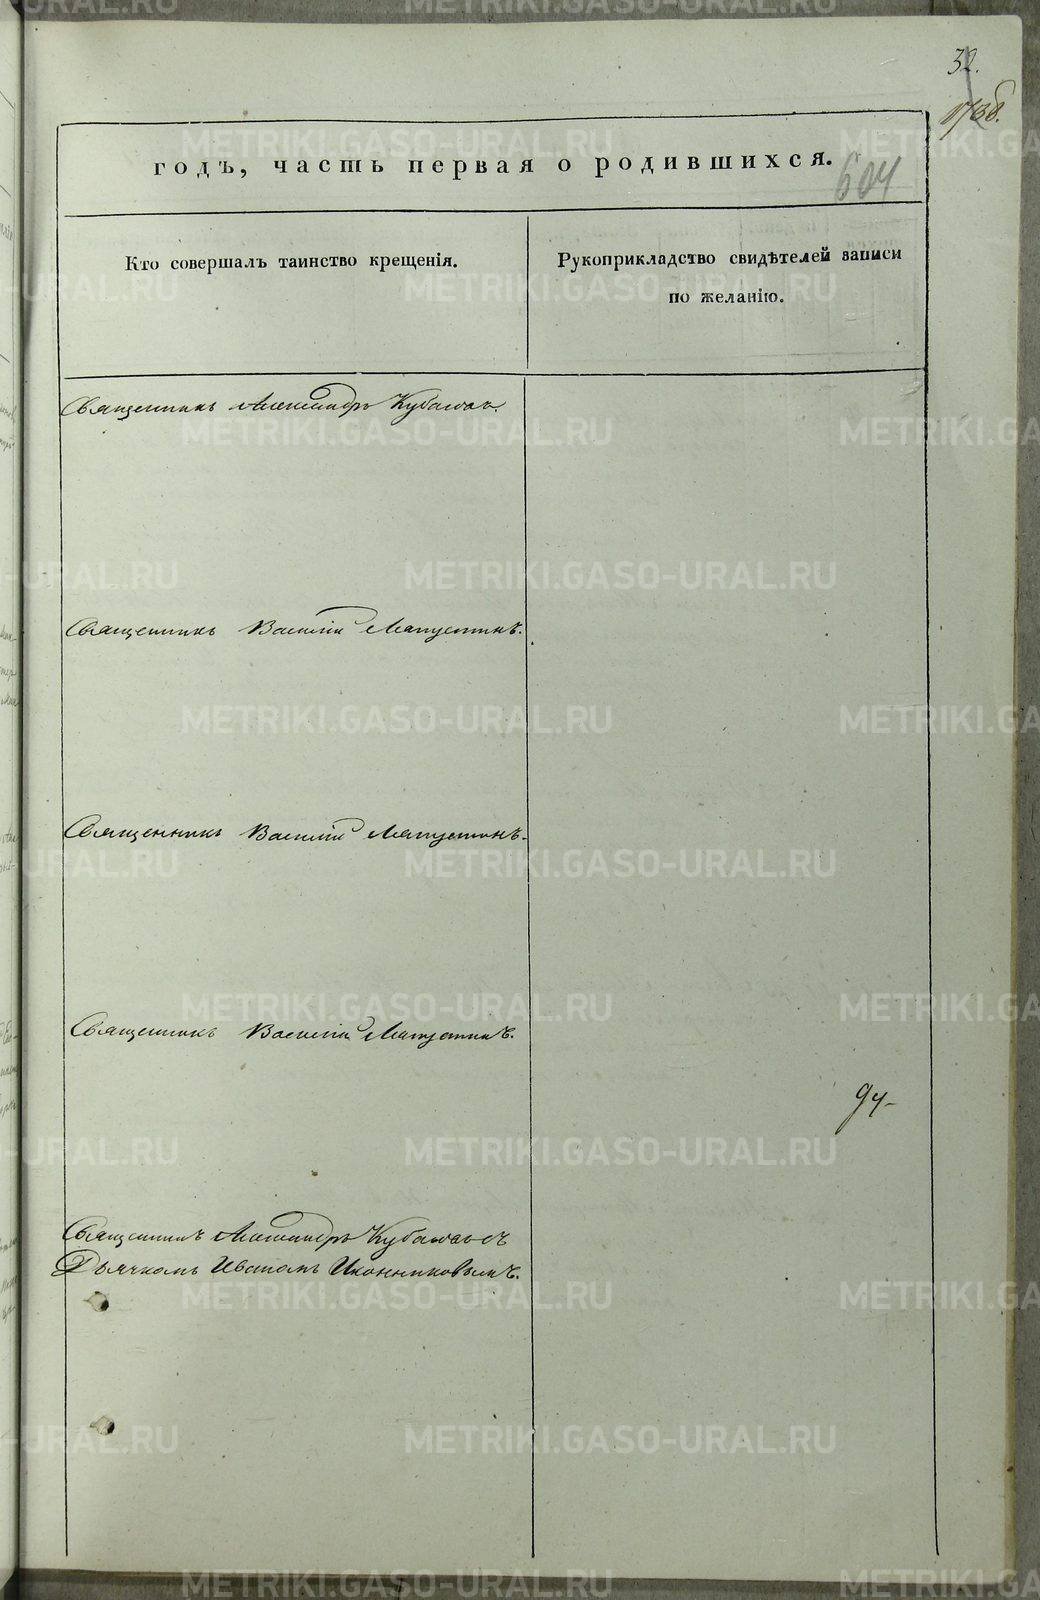 32.
604
годъ, часть первая о родившихся.
Кто совершалъ таинство крещенія.
Рукоприкладство свидѣтелей записи
по желанію.
Священникъ Александръ Кубасовъ.
Священникъ Василій Мапустинъ.
Священникъ Василій Мапустинъ.
Священникъ Василій Мапустинъ.
94
Священникъ Александръ Кубасовъ съ
Дьячкомъ Иваномъ Иконниковымъ.
METRIKI.GASO-URAL.RU